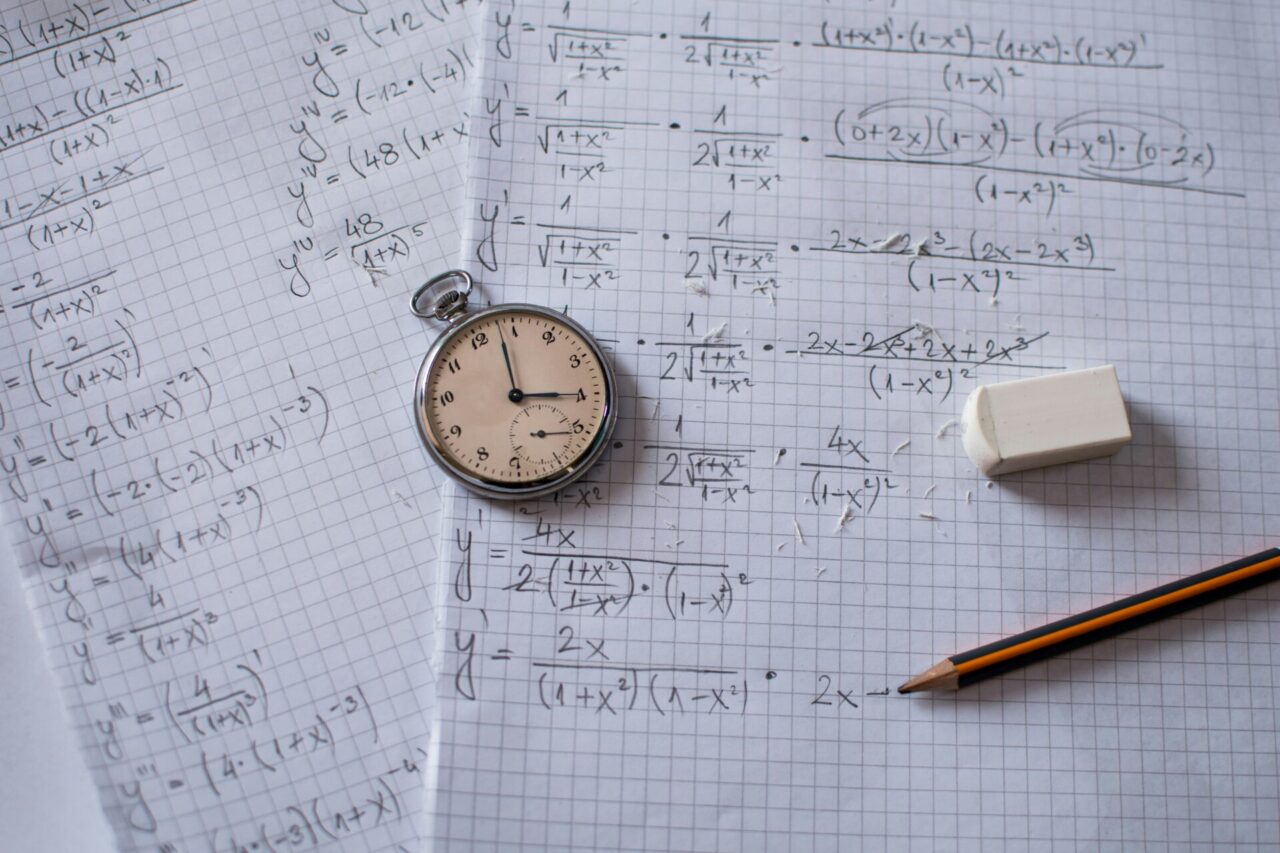 (1+x)-(
(1+x)²
(1+x)-((1-x)·1)
(1+x)²
1-x-1+x
(1+x)²
-2
(1+x)²
= (-2/(1+x)²)'
y'' = (-2(1+x)⁻²)'
y'' = (-2·(-2)(1+x)⁻³)
y'' = (4(1+x)⁻³)
y'' = 4/(1+x)³
y''' = (4/(1+x)³)'
y''' = (4·(1+x)⁻³)
·(-3)(1+x)⁻⁴
yᴵⱽ = (-12(1+
yᴵⱽ = (-12·(-4)(
yᴵⱽ = (48(1+x
yᴵⱽ = 48/(1+x)⁵
y' = 1/√((1+x²)/(1-x²)) · 1/(2√((1+x²)/(1-x²))) · ((1+x²)'·(1-x²)-(1+x²)·(1-x²)')/(1-x)²
y' = 1/√((1+x²)/(1-x²)) · 1/(2√((1+x²)/(1-x²))) · ((0+2x)(1-x²)-(1+x²)·(0-2x))/(1-x²)²
y' = 1/√((1+x²)/(1-x²)) · 1/(2√((1+x²)/(1-x²))) · (2x-2x³-(2x-2x³))/(1-x²)²
· 1/(2√((1+x²)/(1-x²))) · (2x-2x³+2x+2x³)/(1-x²)²
1-x² · 1/(2√((1+x²)/(1-x²))) · 4x/(1-x²)²
y' = 4x/(2·((1+x²)/(1-x²))·(1-x²)²)
y' = 2x/((1+x²)(1-x²)) · 2x -
12 1 2 3 4 5 7 8 9 10 11